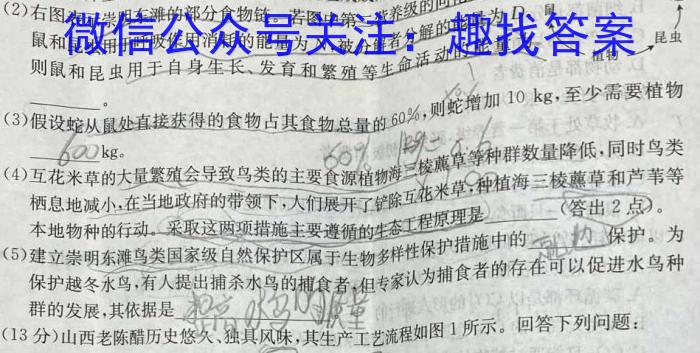 (2)右图为崇明东滩的部分食物链。若图中第一营养级的同化
鼠
微信公众号关注：趣找答案
植物
昆虫
则鼠和昆虫用于自身生长、发育和繁殖等生命活动的能量
。
(3)假设蛇从鼠处直接获得的食物占其食物总量的60%,则蛇增加10 kg,至少需要植物
600 kg。
(4)互花米草的大量繁殖会导致鸟类的主要食源植物海三棱藨草等种群数量降低,同时鸟类
栖息地减小,在当地政府的带领下,人们展开了铲除互花米草,种植海三棱藨草和芦苇等
本地物种的行动。采取这两项措施主要遵循的生态工程原理是 (答出2点)。
(5)建立崇明东滩鸟类国家级自然保护区属于生物多样性保护措施中的 就地 保护。为
保护越冬水鸟,有人提出捕杀水鸟的捕食者,但专家认为捕食者的存在可以促进水鸟种
群的发展,其依据是
(13分)山西老陈醋历史悠久、独具风味,其生产工艺流程如图1所示。回答下列问题: